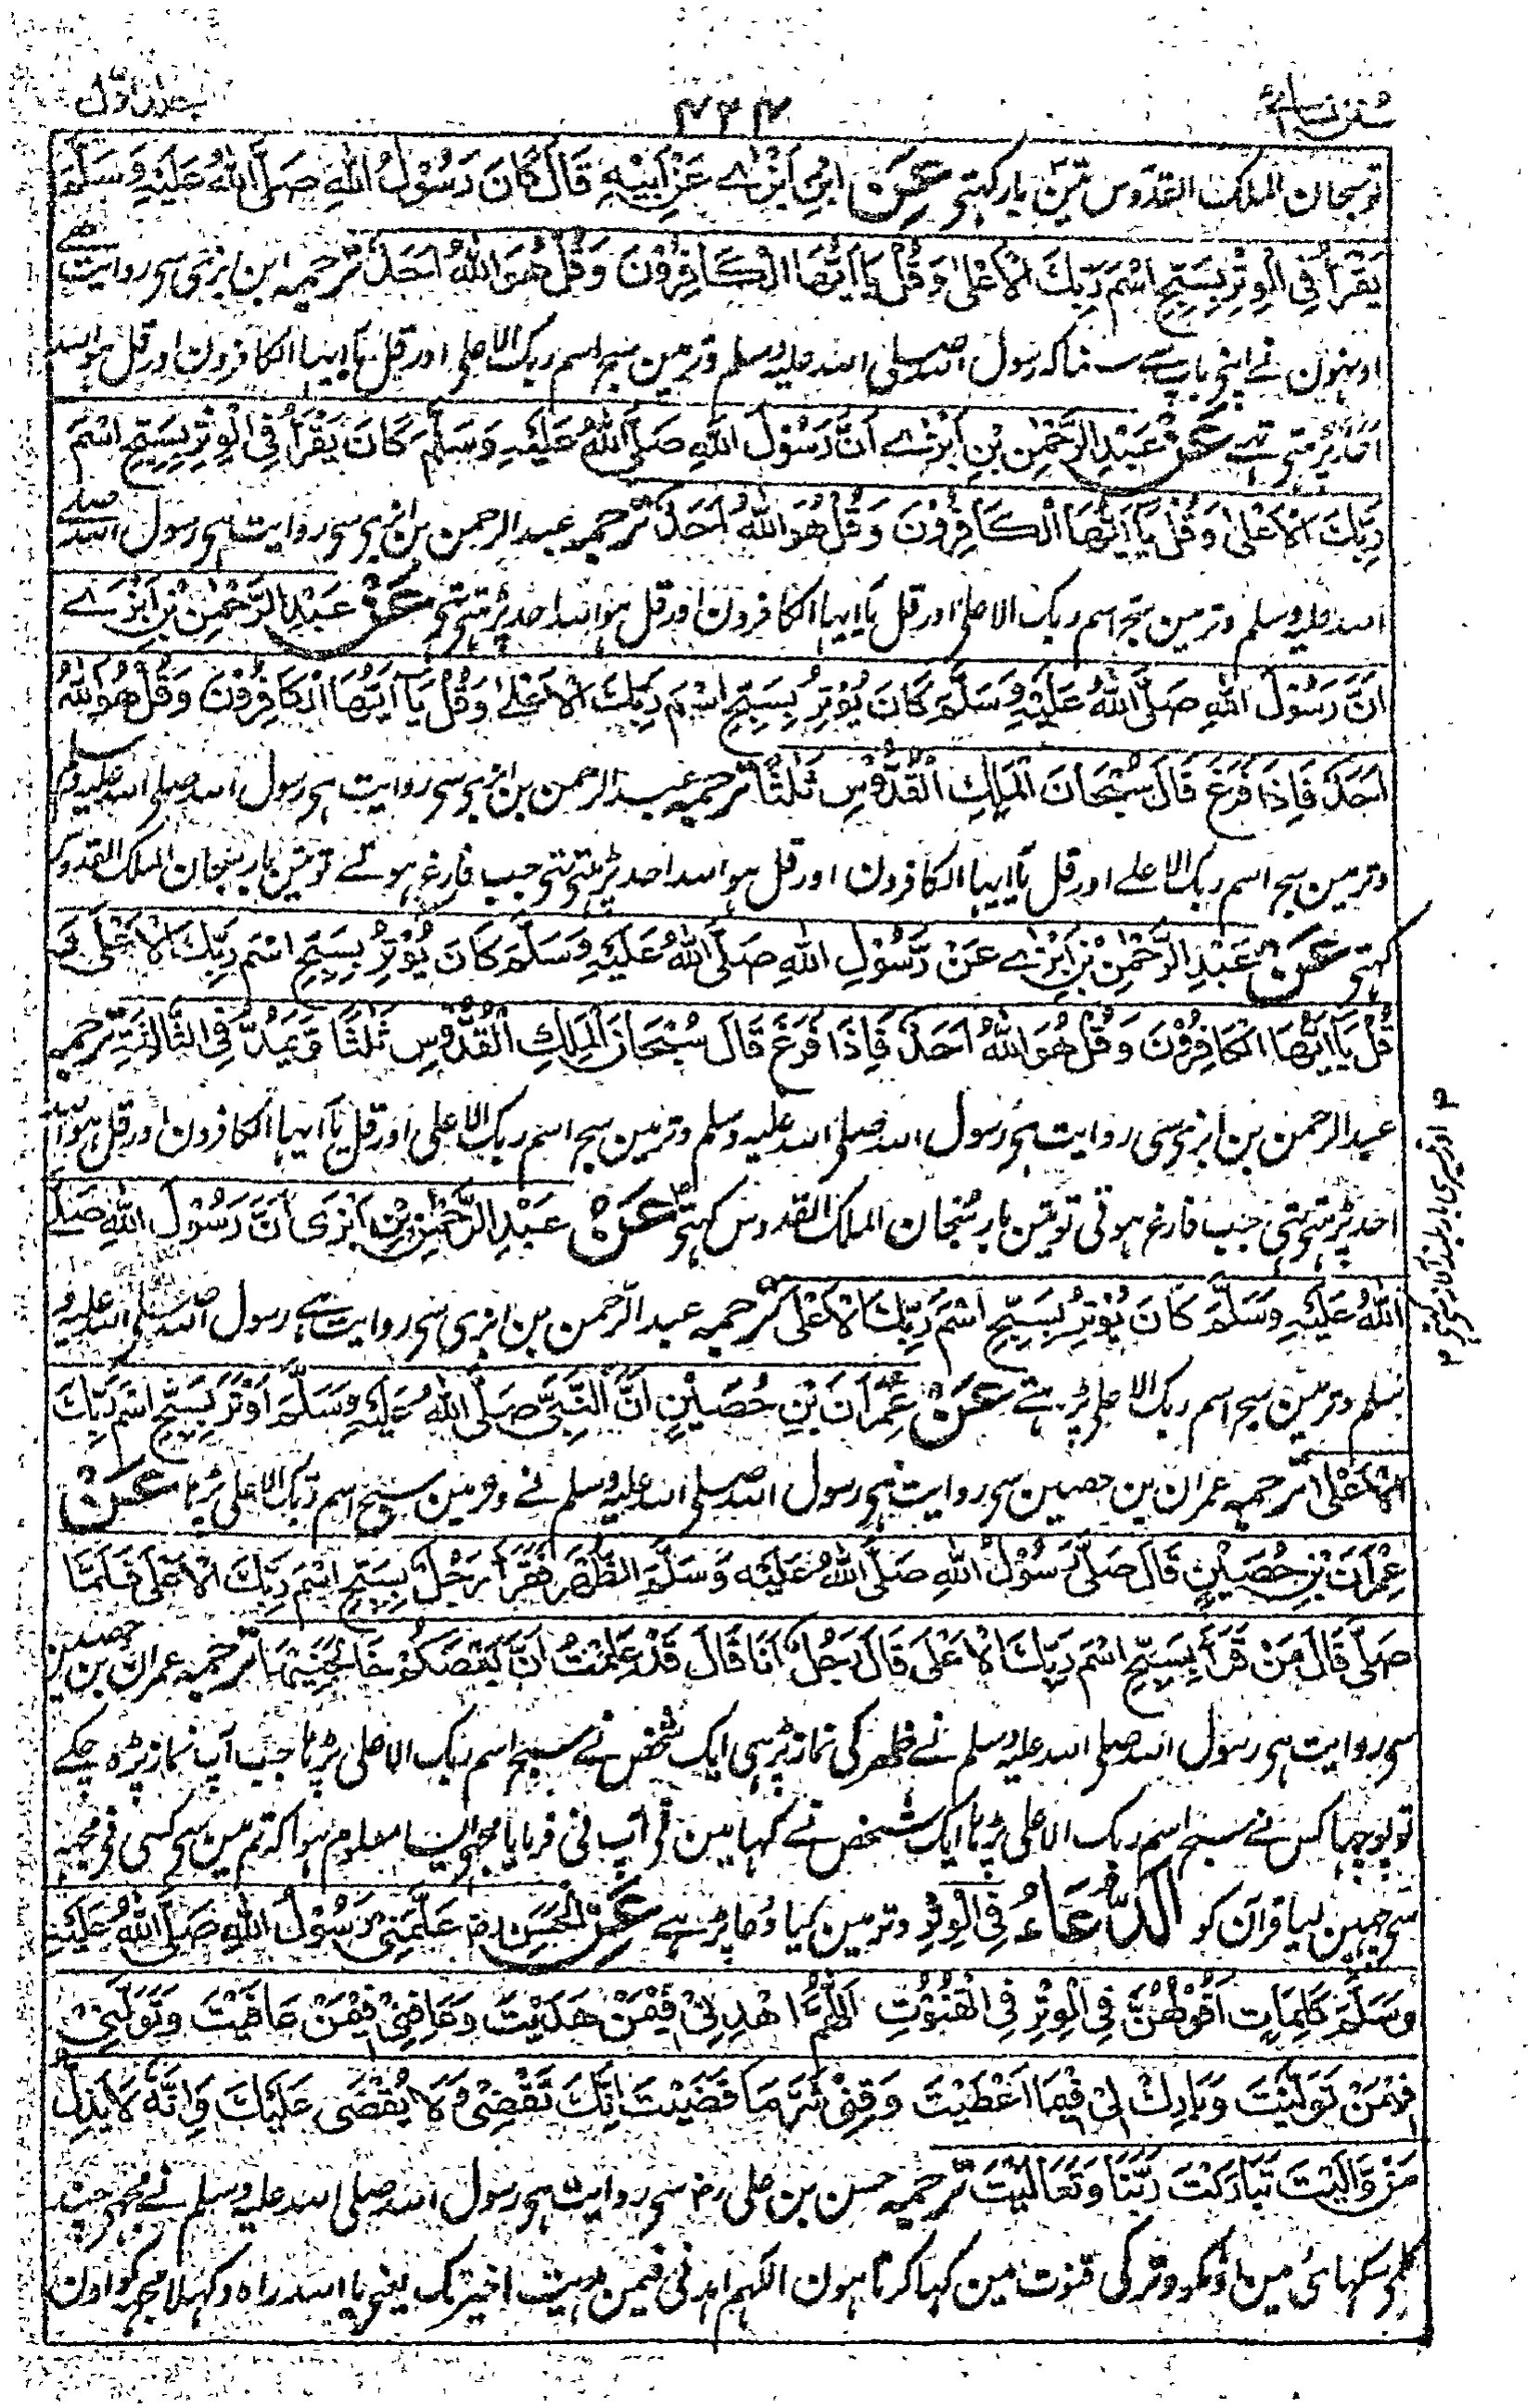 سنن نسائی ۴۲۴ جلد اوّل
تو سبحان الملک القدوس تین بار کہتی عَنِ ابْنِ اَبْزٰے عَنْ اَبِیْهِ قَالَ کَانَ رَسُوْلُ اللهِ صَلَّی اللهُ عَلَیْهِ وَسَلَّمَ
یَقْرَأُ فِی الْوِتْرِ بِسَبِّحِ اسْمَ رَبِّكَ الْاَعْلٰی وَقُلْ یَا اَیُّهَا الْکَافِرُوْنَ وَقُلْ هُوَ اللهُ اَحَدٌ ترجمہ ابن ابزی سی روایت ہے
اونہون نے اپنی باپ سے سنا کہ رسول اللہ صلی اللہ علیہ وسلم وتر مین سبح اسم ربک الاعلی اور قل یا ایہا الکافرون اور قل ہو اللہ
احد پڑہتی تہے عَنْ عَبْدِ الرَّحْمٰنِ بْنِ اَبْزٰے اَنَّ رَسُوْلَ اللهِ صَلَّی اللهُ عَلَیْهِ وَسَلَّمَ کَانَ یَقْرَأُ فِی الْوِتْرِ بِسَبِّحِ اسْمَ
رَبِّكَ الْاَعْلٰی وَقُلْ یَا اَیُّهَا الْکَافِرُوْنَ وَقُلْ هُوَ اللهُ اَحَدٌ ترجمہ عبد الرحمن بن ابزی سی روایت ہی رسول اللہ صلے
اللہ علیہ وسلم وتر مین سبح اسم ربک الاعلی اور قل یا ایہا الکافرون اور قل ہو اللہ احد پڑہتی تہی عَنْ عَبْدِ الرَّحْمٰنِ بْنِ اَبْزٰے
اَنَّ رَسُوْلَ اللهِ صَلَّی اللهُ عَلَیْهِ وَسَلَّمَ کَانَ یُوْتِرُ بِسَبِّحِ اسْمَ رَبِّكَ الْاَعْلٰے وَقُلْ یَا اَیُّهَا الْکَافِرُوْنَ وَقُلْ هُوَ اللهُ
اَحَدٌ فَاِذَا فَرَغَ قَالَ سُبْحَانَ الْمَلِكِ الْقُدُّوْسِ ثَلٰثًا ترجمہ عبد الرحمن بن ابزی سی روایت ہی رسول اللہ صلی اللہ علیہ وسلم
وتر مین سبح اسم ربک الاعلے اور قل یا ایہا الکافرون اور قل ہو اللہ احد پڑہتی تہی جب فارغ ہوتے تو تین بار سبحان الملک القدوس
کہتی عَنْ عَبْدِ الرَّحْمٰنِ بْنِ اَبْزٰے عَنْ رَسُوْلِ اللهِ صَلَّی اللهُ عَلَیْهِ وَسَلَّمَ کَانَ یُوْتِرُ بِسَبِّحِ اسْمَ رَبِّكَ الْاَعْلٰی وَ
قُلْ یَا اَیُّهَا الْکَافِرُوْنَ وَقُلْ هُوَ اللهُ اَحَدٌ فَاِذَا فَرَغَ قَالَ سُبْحَانَ الْمَلِكِ الْقُدُّوْسِ ثَلٰثًا وَّیَمُدُّ فِی الثَّالِثَةِ ترجمہ
عبد الرحمن بن ابزی سی روایت ہی رسول اللہ صلی اللہ علیہ وسلم وتر مین سبح اسم ربک الاعلی اور قل یا ایہا الکافرون اور قل ہو اللہ
احد پڑہتی تہی جب فارغ ہوتی تو تین بار سبحان الملک القدوس کہتی عَنْ عَبْدِ الرَّحْمٰنِ بْنِ اَبْزٰی اَنَّ رَسُوْلَ اللهِ صَلَّے
اللهُ عَلَیْهِ وَسَلَّمَ کَانَ یُوْتِرُ بِسَبِّحِ اسْمَ رَبِّكَ الْاَعْلٰی ترجمہ عبد الرحمن بن ابزی سی روایت ہے رسول اللہ صلی اللہ علیہ و
سلم وتر مین سبح اسم ربک الاعلی پڑہتے عَنْ عِمْرَانَ بْنِ حُصَیْنٍ اَنَّ النَّبِیَّ صَلَّی اللهُ عَلَیْهِ وَسَلَّمَ اَوْتَرَ بِسَبِّحِ اسْمَ رَبِّكَ
الْاَعْلٰی ترجمہ عمران بن حصین سی روایت ہی رسول اللہ صلی اللہ علیہ وسلم نے وتر مین سبح اسم ربک الاعلی پڑہا عَنْ
عِمْرَانَ بْنِ حُصَیْنٍ قَالَ صَلّٰی رَسُوْلُ اللهِ صَلَّی اللهُ عَلَیْهِ وَسَلَّمَ الظُّهْرَ فَقَرَأَ رَجُلٌ بِسَبِّحِ اسْمَ رَبِّكَ الْاَعْلٰی فَلَمَّا
صَلّٰی قَالَ مَنْ قَرَأَ بِسَبِّحِ اسْمَ رَبِّكَ الْاَعْلٰی قَالَ رَجُلٌ اَنَا قَالَ قَدْ عَلِمْتُ اَنَّ بَعْضَکُمْ خَالَجَنِیْهَا ترجمہ عمران بن حصین
سی روایت ہی رسول اللہ صلی اللہ علیہ وسلم نے ظہر کی نماز پڑہی ایک شخص نے سبح اسم ربک الاعلی پڑہا جب آپ نماز پڑہ چکے
تو پوچہا کس نے سبح اسم ربک الاعلی پڑہا ایک شخص نے کہا مین نی آپ نی فرمایا مجہی ایسا معلوم ہوا کہ تم مین سی کسی نی مجہہ
سی چہین لیا قرآن کو اَلدُّعَاءُ فِی الْوِتْرِ وتر مین کیا دعا پڑہے عَنِ الْحَسَنِ رض عَلَّمَنِیْ رَسُوْلُ اللهِ صَلَّی اللهُ عَلَیْهِ
وَسَلَّمَ کَلِمَاتٍ اَقُوْلُهُنَّ فِی الْوِتْرِ فِی الْقُنُوْتِ اَللّٰهُمَّ اهْدِنِیْ فِیْمَنْ هَدَیْتَ وَعَافِنِیْ فِیْمَنْ عَافَیْتَ وَتَوَلَّنِیْ
فِیْمَنْ تَوَلَّیْتَ وَبَارِكْ لِیْ فِیْمَا اَعْطَیْتَ وَقِنِیْ شَرَّ مَا قَضَیْتَ اِنَّكَ تَقْضِیْ وَلَا یُقْضٰی عَلَیْكَ وَاِنَّهٗ لَا یَذِلُّ
مَنْ وَّالَیْتَ تَبَارَکْتَ رَبَّنَا وَتَعَالَیْتَ ترجمہ حسن بن علی رض سی روایت ہی رسول اللہ صلی اللہ علیہ وسلم نے مجہی چند
کلمی سکہائی مین اونکو وتر کی قنوت مین کہا کرتا ہون اللہم اہدنی فیمن ہدیت اخیر تک یعنی یا اللہ راہ دکہلا مجہکو اون
۲ اور تیسری بار بلند آواز سی کہتی ۲